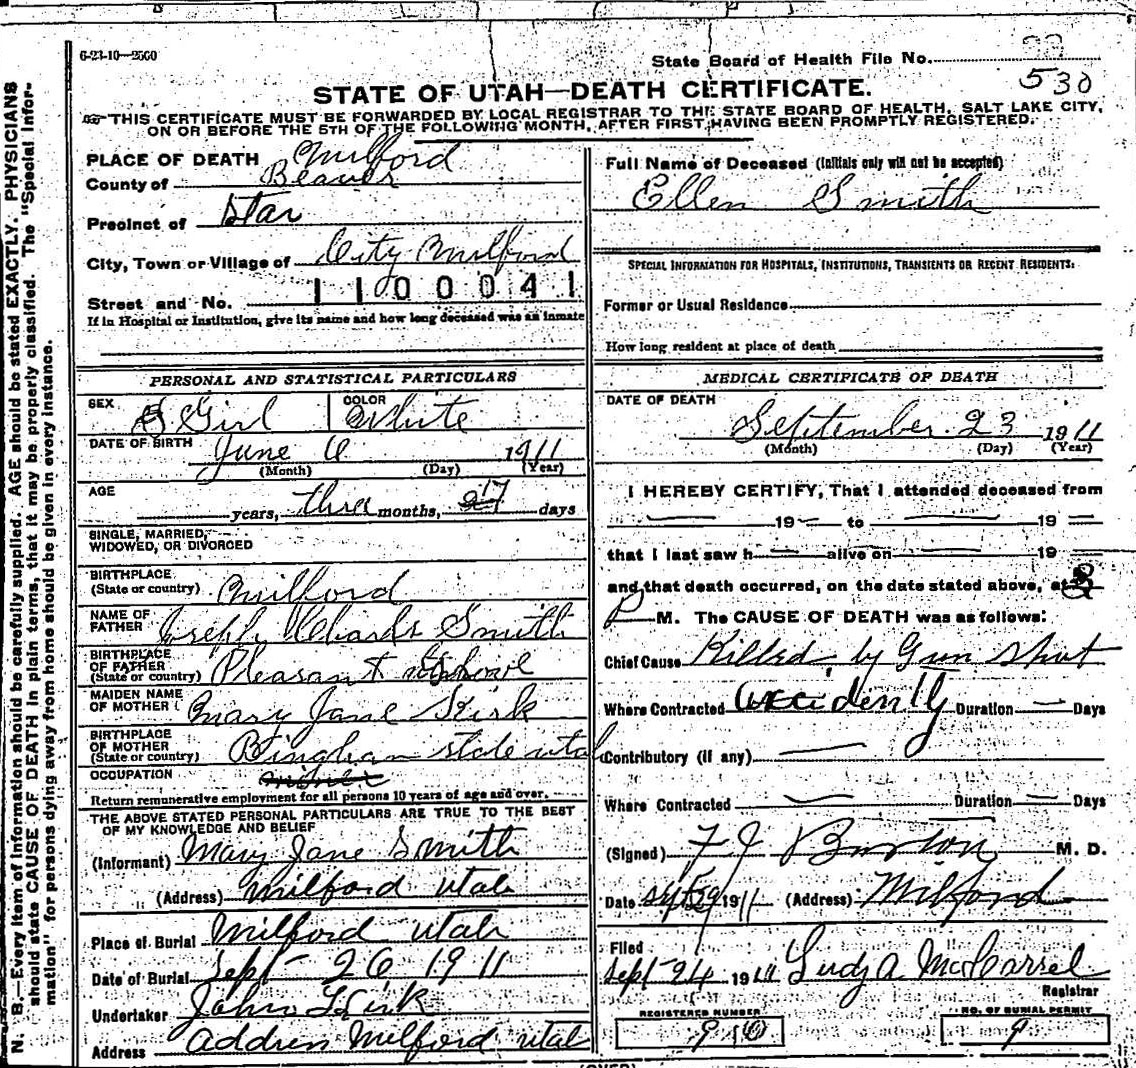 6-23-10—2500
State Board of Health File No.
530
STATE OF UTAH—DEATH CERTIFICATE.
THIS CERTIFICATE MUST BE FORWARDED BY LOCAL REGISTRAR TO THE STATE BOARD OF HEALTH, SALT LAKE CITY,
ON OR BEFORE THE 5TH OF THE FOLLOWING MONTH, AFTER FIRST HAVING BEEN PROMPTLY REGISTERED.
N. B.—Every item of information should be carefully supplied. AGE should be stated EXACTLY. PHYSICIANS
should state CAUSE OF DEATH in plain terms, that it may be properly classified. The "Special Infor-
mation" for persons dying away from home should be given in every instance.
PLACE OF DEATH Milford
County of Beaver
Precinct of Star
City, Town or Village of City Milford
Street and No. 1100041
If in Hospital or Institution, give its name and how long deceased was an inmate
PERSONAL AND STATISTICAL PARTICULARS
SEX Girl COLOR White
DATE OF BIRTH June 6 1911
(Month) (Day) (Year)
AGE years, three months, 17 days
SINGLE, MARRIED,
WIDOWED, OR DIVORCED
BIRTHPLACE
(State or country) Milford
NAME OF
FATHER Joseph Smith
BIRTHPLACE
OF FATHER
(State or country) Pleasant
MAIDEN NAME
OF MOTHER Mary Jane Kirk
BIRTHPLACE
OF MOTHER
(State or country) Bingham state utah
OCCUPATION
Return remunerative employment for all persons 10 years of age and over.
THE ABOVE STATED PERSONAL PARTICULARS ARE TRUE TO THE BEST
OF MY KNOWLEDGE AND BELIEF
(Informant) Mary Jane Smith
(Address) Milford utah
Place of Burial Milford utah
Date of Burial Sept 26 1911
Undertaker John Kirk
Address Address Milford utah
Full Name of Deceased (Initials only will not be accepted)
Ellen Smith
SPECIAL INFORMATION FOR HOSPITALS, INSTITUTIONS, TRANSIENTS OR RECENT RESIDENTS:
Former or Usual Residence
How long resident at place of death
MEDICAL CERTIFICATE OF DEATH
DATE OF DEATH
September 23 1911
(Month) (Day) (Year)
I HEREBY CERTIFY, That I attended deceased from
19 to 19
that I last saw h alive on 19
and that death occurred, on the date stated above, at 8
P M. The CAUSE OF DEATH was as follows:
Chief Cause Killed by Gun Shot
Where Contracted accidently Duration Days
Contributory (if any)
Where Contracted Duration Days
(Signed) F J Burton M. D.
Date 1911 (Address) Milford
Filed
Sept 24 1911
Registrar
REGISTERED NUMBER
910
NO. OF BURIAL PERMIT
9
(OVER)